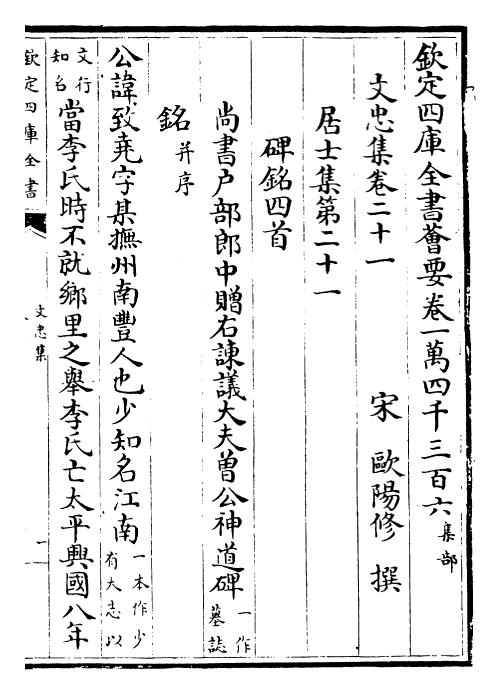 欽定四庫全書薈要卷一萬四千三百六集部
文忠集卷二十一　宋　歐陽修　撰
居士集第二十一
碑銘四首
尚書户部郎中贈右諫議大夫曾公神道碑一作墓誌
銘并序
公諱致堯字某撫州南豐人也少知名江南一本作少有大志以
文行知名當李氏時不就鄉里之舉李氏亡太平興國八年
欽定四庫全書
文忠集
一